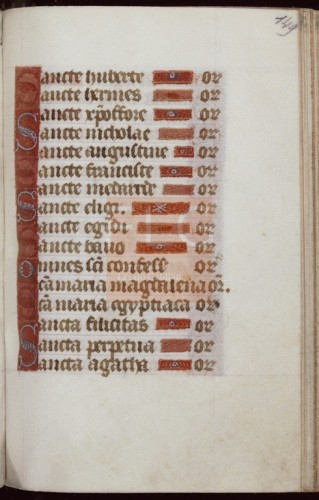 149
Sancte huberte or
Sancte hermes or
Sancte xpoffore or
Sancte nicholae or
Sancte augustine or
Sancte francisce or
Sancte medarde or
Sancte eligi. or
Sancte egidi or
Sancte bavo or
Omnes sci confess or
Sca maria magdalena or.
Sca maria egyptiaca or
Sancta felicitas or
Sancta perpetua or
Sancta agatha or